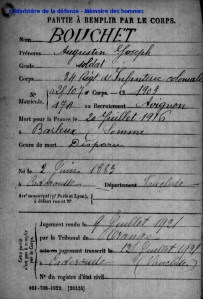 Ministère de la défense - Mémoire des hommes
PARTIE À REMPLIR PAR LE CORPS.
Nom BOUCHET
Prénoms Augustin Joseph
Grade soldat
Corps 34 Régt d'Infanterie coloniale
N° Matricule. 28107 au Corps. — Cl. 1903
474 au Recrutement Avignon
Mort pour la France le 20 Juillet 1916
à Barleux Somme
Genre de mort Disparu
Né le 2 Juin 1883
à Caderousse Département Vaucluse
Arr' municipal (p' Paris et Lyon),
à défaut rue et N°.
Jugement rendu le 9 Juillet 1921
par le Tribunal de Orange
jugement transcrit le 12 Juillet 1921
à Caderousse (Vaucluse)
N° du registre d'état civil